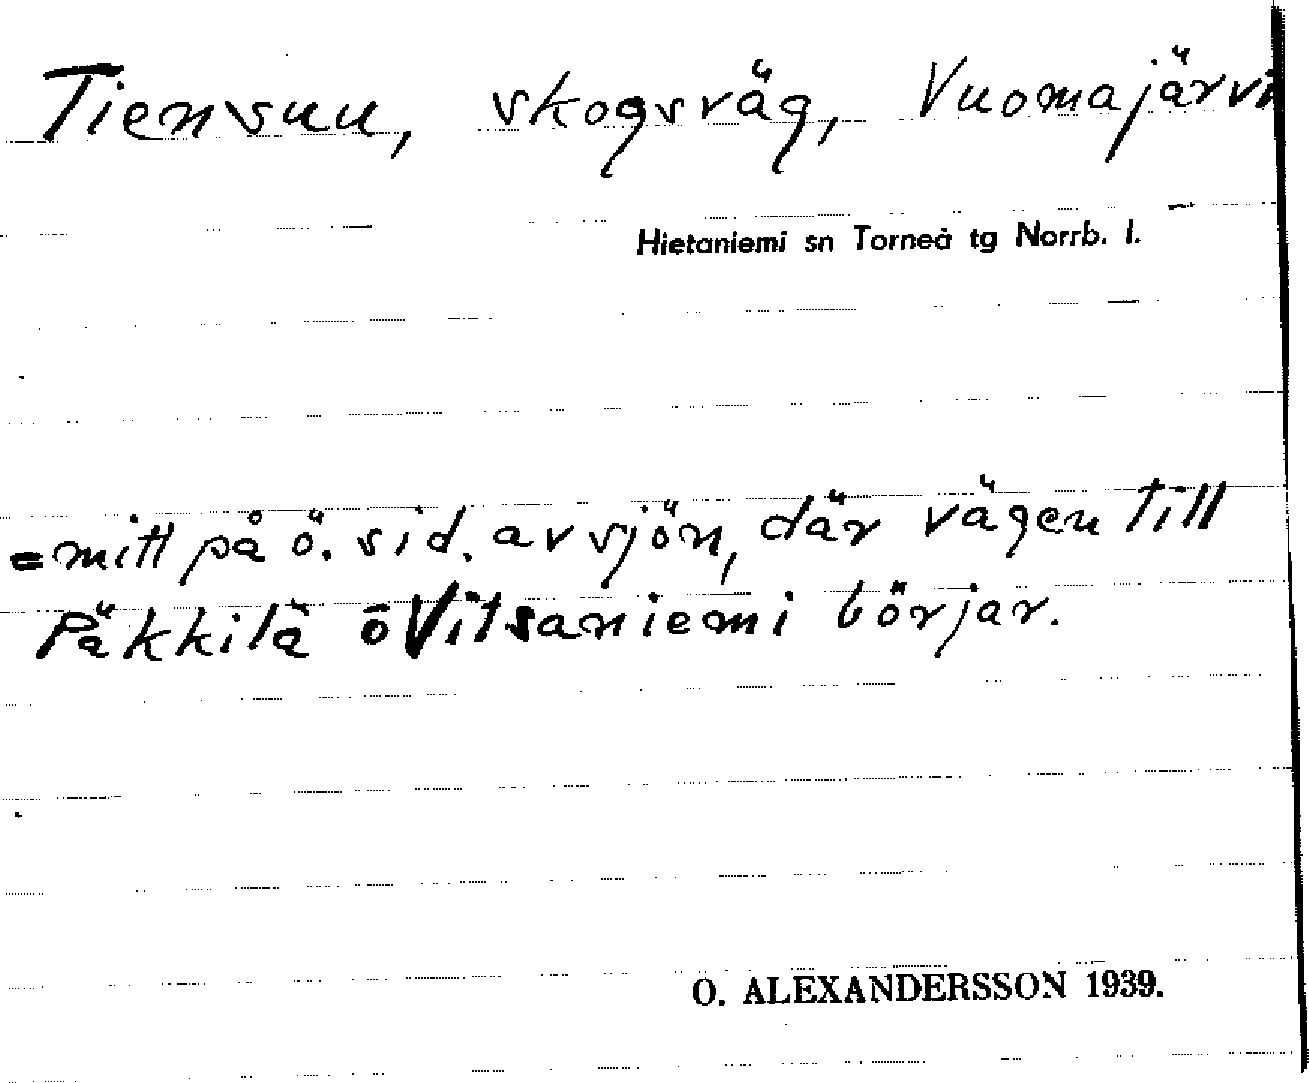 Tiensuu, skogsväg, Vuomajärvi
Hietaniemi sn Torneå tg Norrb. l.
= mitt på ö. sid. av sjön, där vägen till
Päkkilä o Vitsaniemi börjar.
O. ALEXANDERSSON 1939.